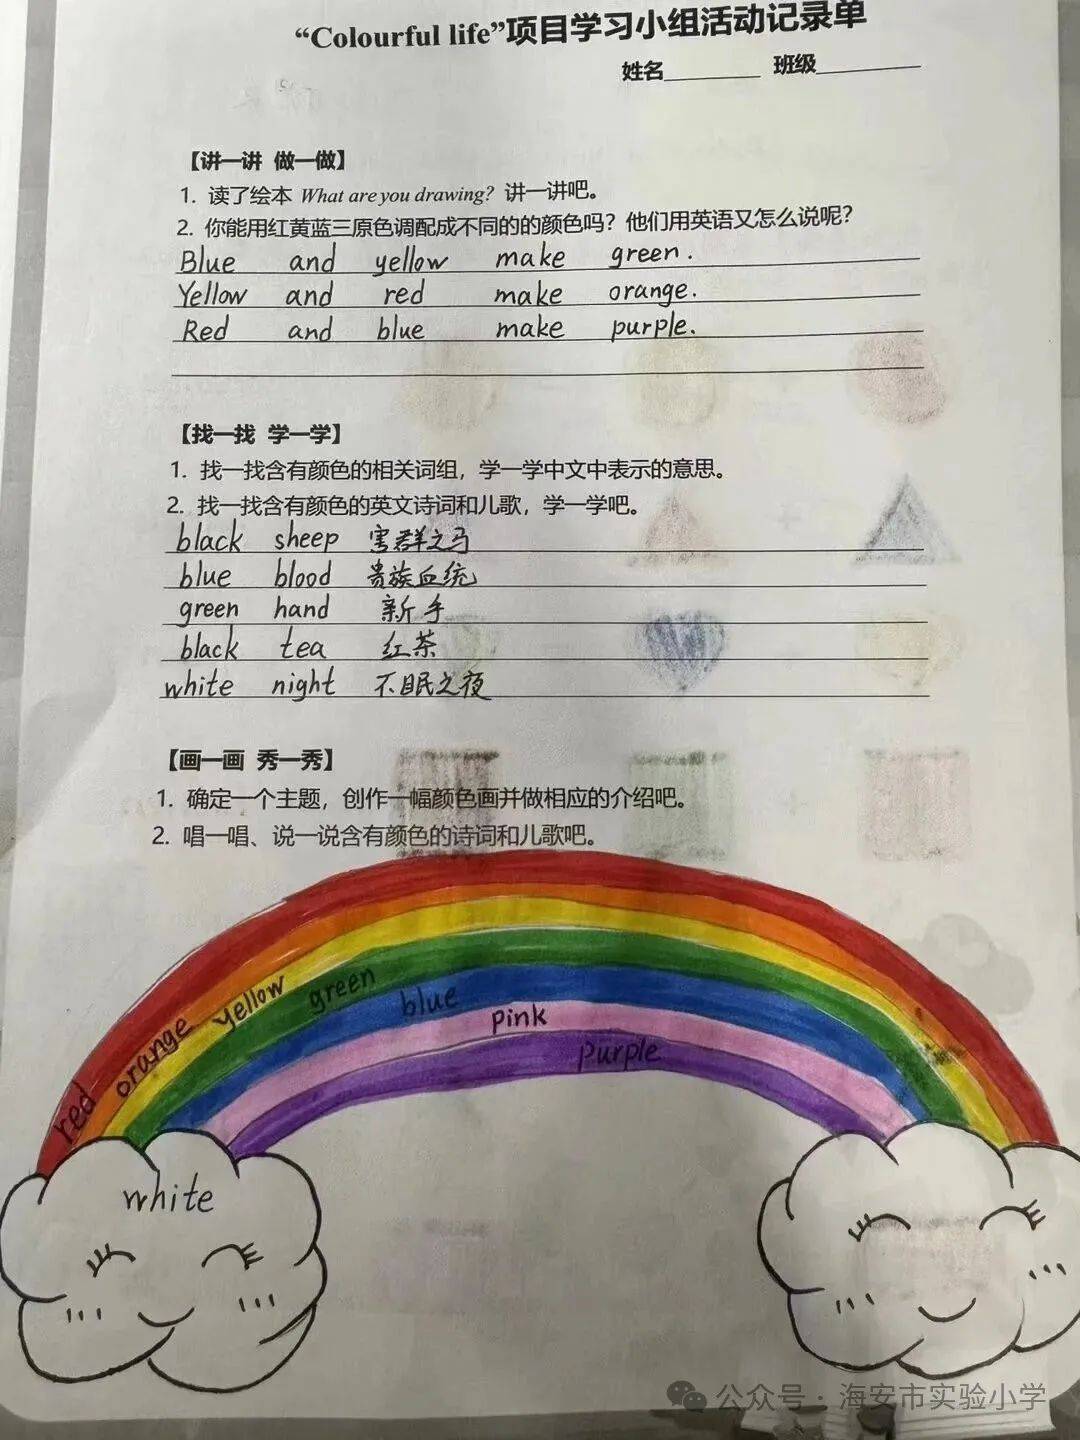 “Colourful life”项目学习小组活动记录单
姓名________ 班级________
【讲一讲 做一做】
1. 读了绘本 What are you drawing? 讲一讲吧。
2. 你能用红黄蓝三原色调配成不同的的颜色吗？他们用英语又怎么说呢？
Blue and yellow make green.
Yellow and red make orange.
Red and blue make purple.
【找一找 学一学】
1. 找一找含有颜色的相关词组，学一学中文中表示的意思。
2. 找一找含有颜色的英文诗词和儿歌，学一学吧。
black sheep 害群之马
blue blood 贵族血统
green hand 新手
black tea 红茶
white night 不眠之夜
【画一画 秀一秀】
1. 确定一个主题，创作一幅颜色画并做相应的介绍吧。
2. 唱一唱、说一说含有颜色的诗词和儿歌吧。
red
orange
yellow
green
blue
pink
purple
white
公众号·海安市实验小学